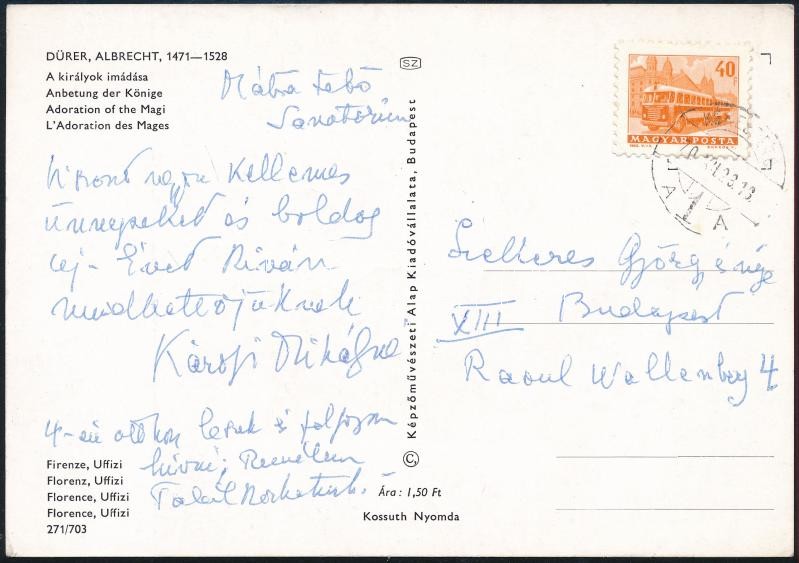 DÜRER, ALBRECHT, 1471—1528
A királyok imádása
Anbetung der Könige
Adoration of the Magi
L'Adoration des Mages
Mátra
Sanatórium
nagyon Kellemes
ünnepeket és boldog
új-Évet Kíván
mindkettőjüknek
Károlyi Mihályné
4-én otthon leszek és
hívni; Remélem
Találkozhatunk.
Firenze, Uffizi
Florenz, Uffizi
Florence, Uffizi
Florence, Uffizi
271/703
Ára: 1,50 Ft
Kossuth Nyomda
SZ
© Képzőművészeti Alap Kiadóvállalata, Budapest
40 F
MAGYAR POSTA
Szekeres György
XIII Budapest
Raoul Wallenberg 4